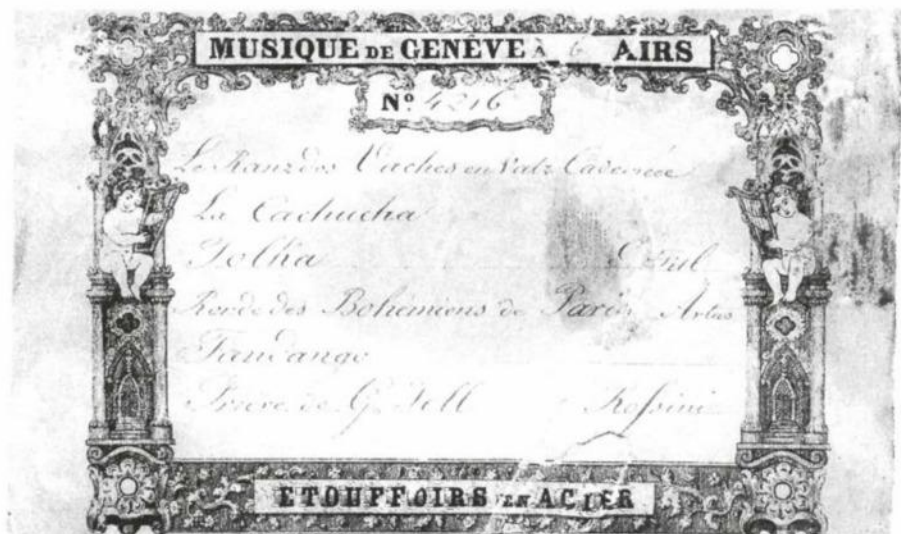 MUSIQUE DE GENÈVE À 6 AIRS
Nº 4216
Le Ranz des Vaches en Valz
La Cachucha
Polka
Ronde des Bohémiens de Paris Artus
Fandango
Prière de G. Tell Rossini
ETOUFFOIRS EN ACIER